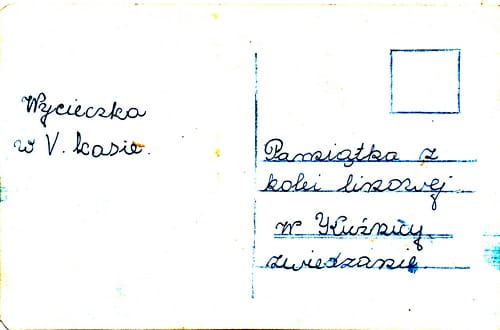 Wycieczka
w V. kasie.
Pamiątka z
kolei linowej
w Kuźnicy
zwiedzanie.